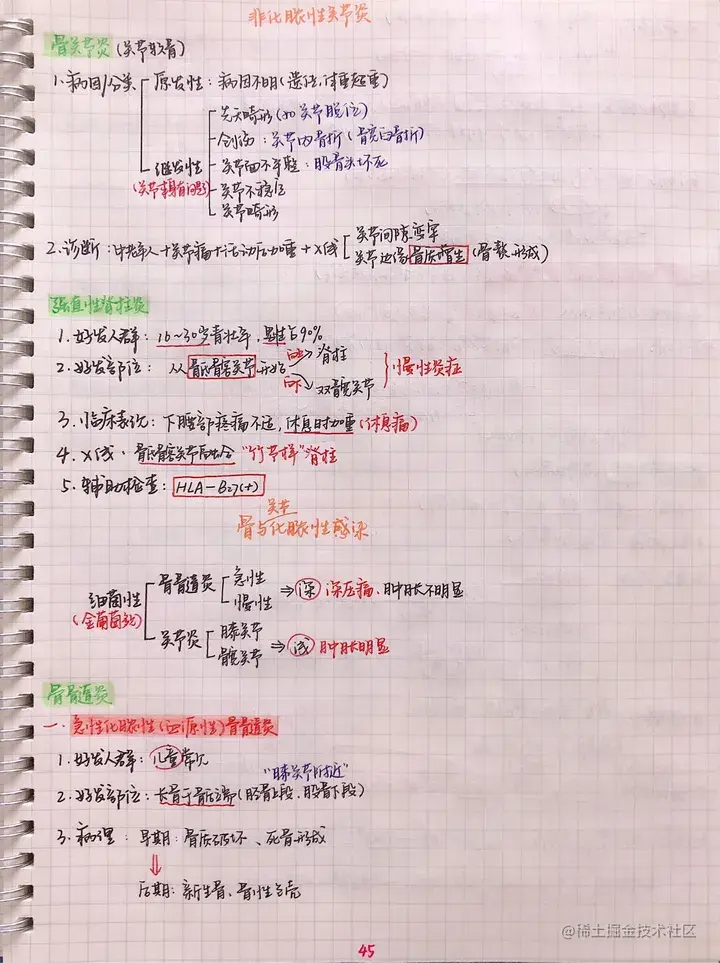 非化脓性关节炎
骨关节炎 (关节软骨)
1.病因/分类
原发性：病因不明(遗传,体重超重)
继发性
(关节本身有问题)
先天畸形(如关节脱位)
创伤：关节内骨折(髋臼骨折)
关节面不平整：股骨头坏死
关节不稳定
关节畸形
2.诊断：中老年人+关节痛+活动后加重+X线
关节间隙变窄
关节边缘骨质增生(骨赘形成)
强直性脊柱炎
1.好发人群：16~30岁青壮年,男性占90%
2.好发部位：从骶髂关节开始
向上 脊柱
向下 双髋关节
慢性炎症
3.临床表现：下腰部疼痛不适,休息时加重(休息痛)
4.X线：骶髂关节融合 "竹节样"脊柱
5.辅助检查：HLA-B27(+)
关节
骨与化脓性感染
细菌性
(金葡菌)
骨髓炎
急性
慢性
⇒深 深压痛、肿胀不明显
关节炎
膝关节
髋关节
⇒浅 肿胀明显
骨髓炎
一.急性化脓性(血源性)骨髓炎
1.好发人群：儿童常见
"膝关节附近"
2.好发部位：长骨干骺端(胫骨上段、股骨下段)
3.病理：早期：骨质破坏、死骨形成
后期：新生骨、骨性包壳
45
@稀土掘金技术社区